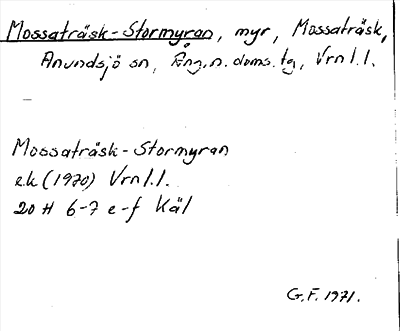 Mossaträsk-Stormyran, myr, Mossaträsk,
Anundsjö sn, Ång.n.doms.tg, Vrnl.l.
Mossaträsk-Stormyran
ek (1970) Vrnl.l.
20 H 6-7 e-f Käl
G.F. 1971.